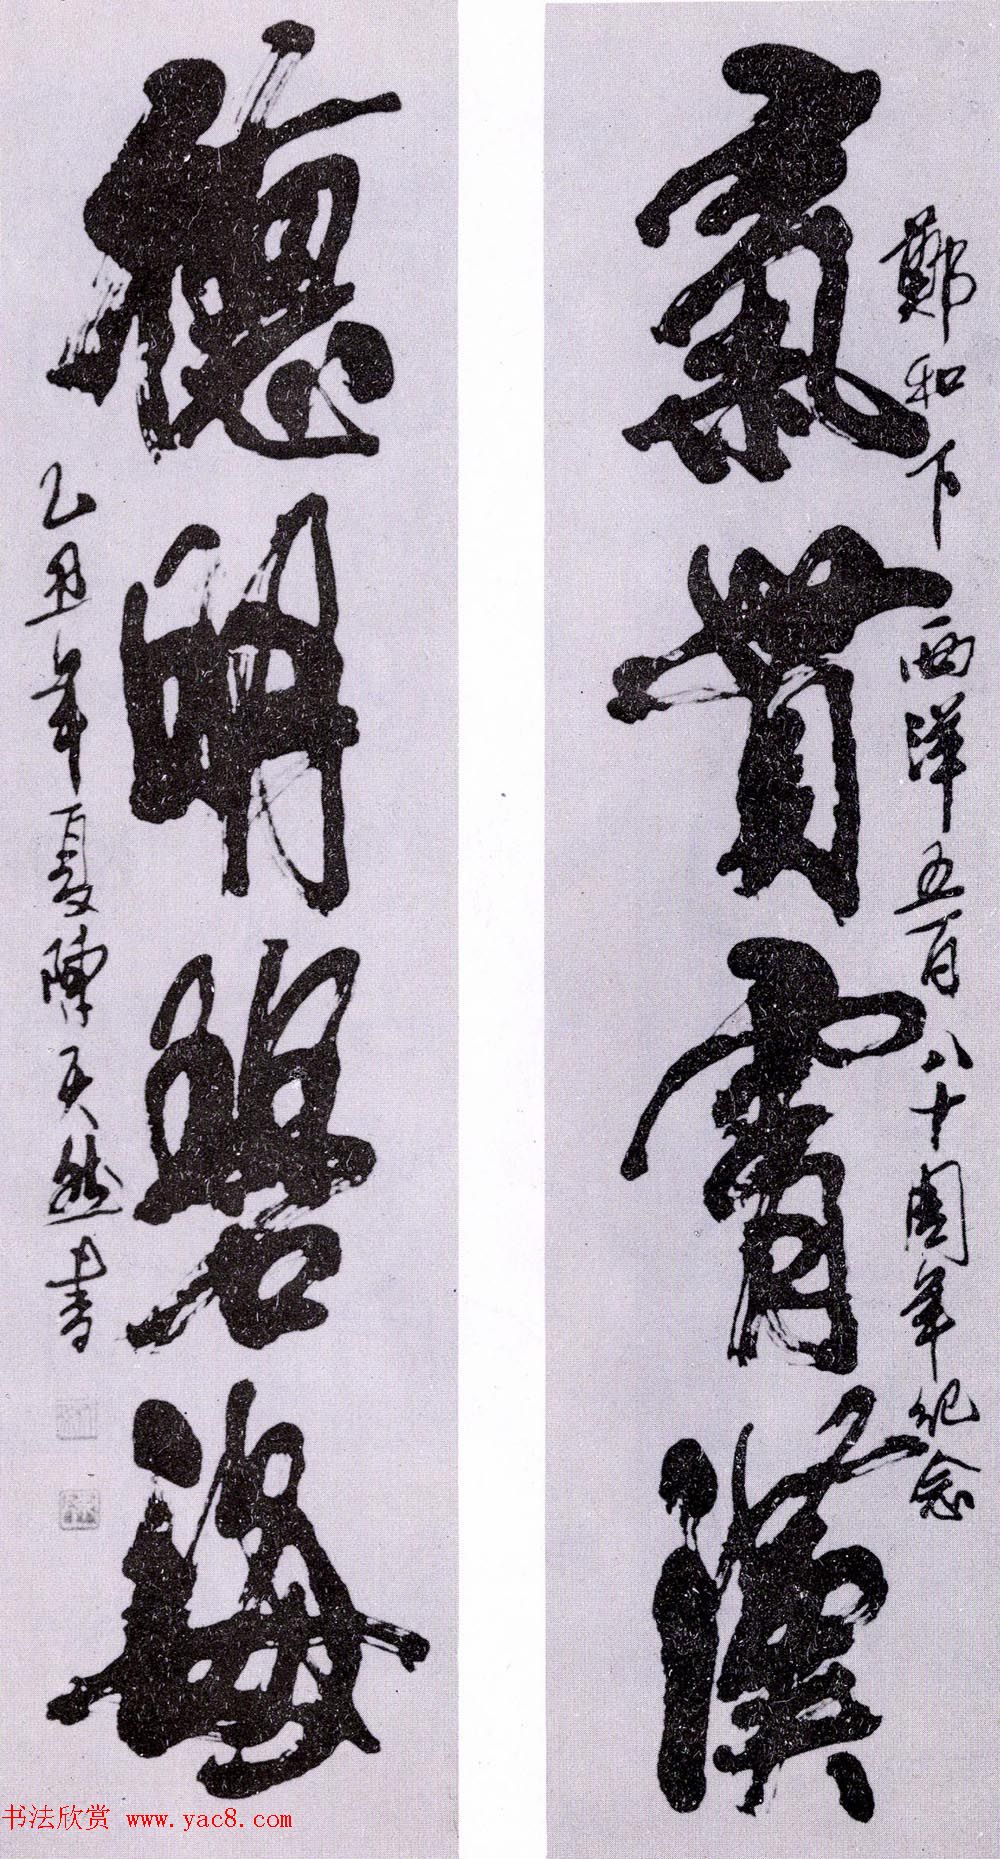 鄭和下西洋五百八十周年紀念
氣貫霄漢
德明碧海
乙丑年夏陳天然書
书法欣赏 www.yac8.com